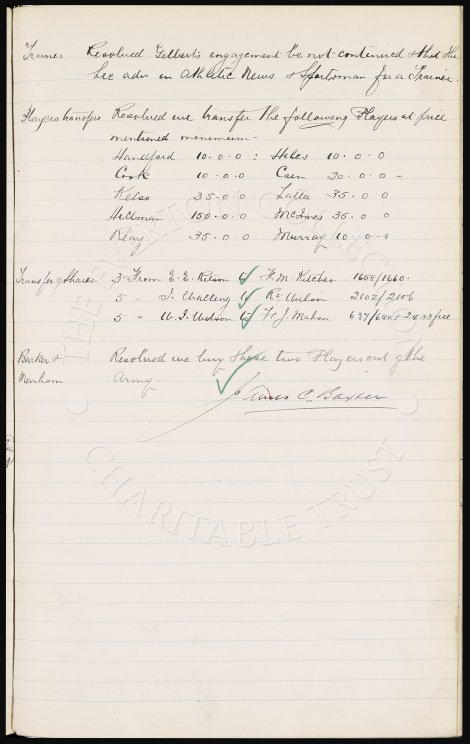 Trainer Resolved Gilberts engagement be not continued & that the
Sec adv in Athletic News & Sportsman for a Trainer.
Players transfers Resolved we transfer the following Players at price
mentioned minimum -
Handford 10.0.0 : Hiles 10.0.0
Cook 10.0.0 Cain 20.0.0 -
Kelso 35.0.0 Latta 35.0.0
Hillman 150.0.0 McInnes 35.0.0
Reay 35.0.0 Murray 10.0.0
Transfer of Shares 3 From E. E. to H. M. Kitchen 1658/1660.
5 " J. to Rd Wilson 2102/2106
5 " W. J. to H. J. Mahon 637/640 +
Barker & Resolved we buy these two Players out of the
Menham Army.
James C. Baxter
THE EVERTON COLLECTION
CHARITABLE TRUST